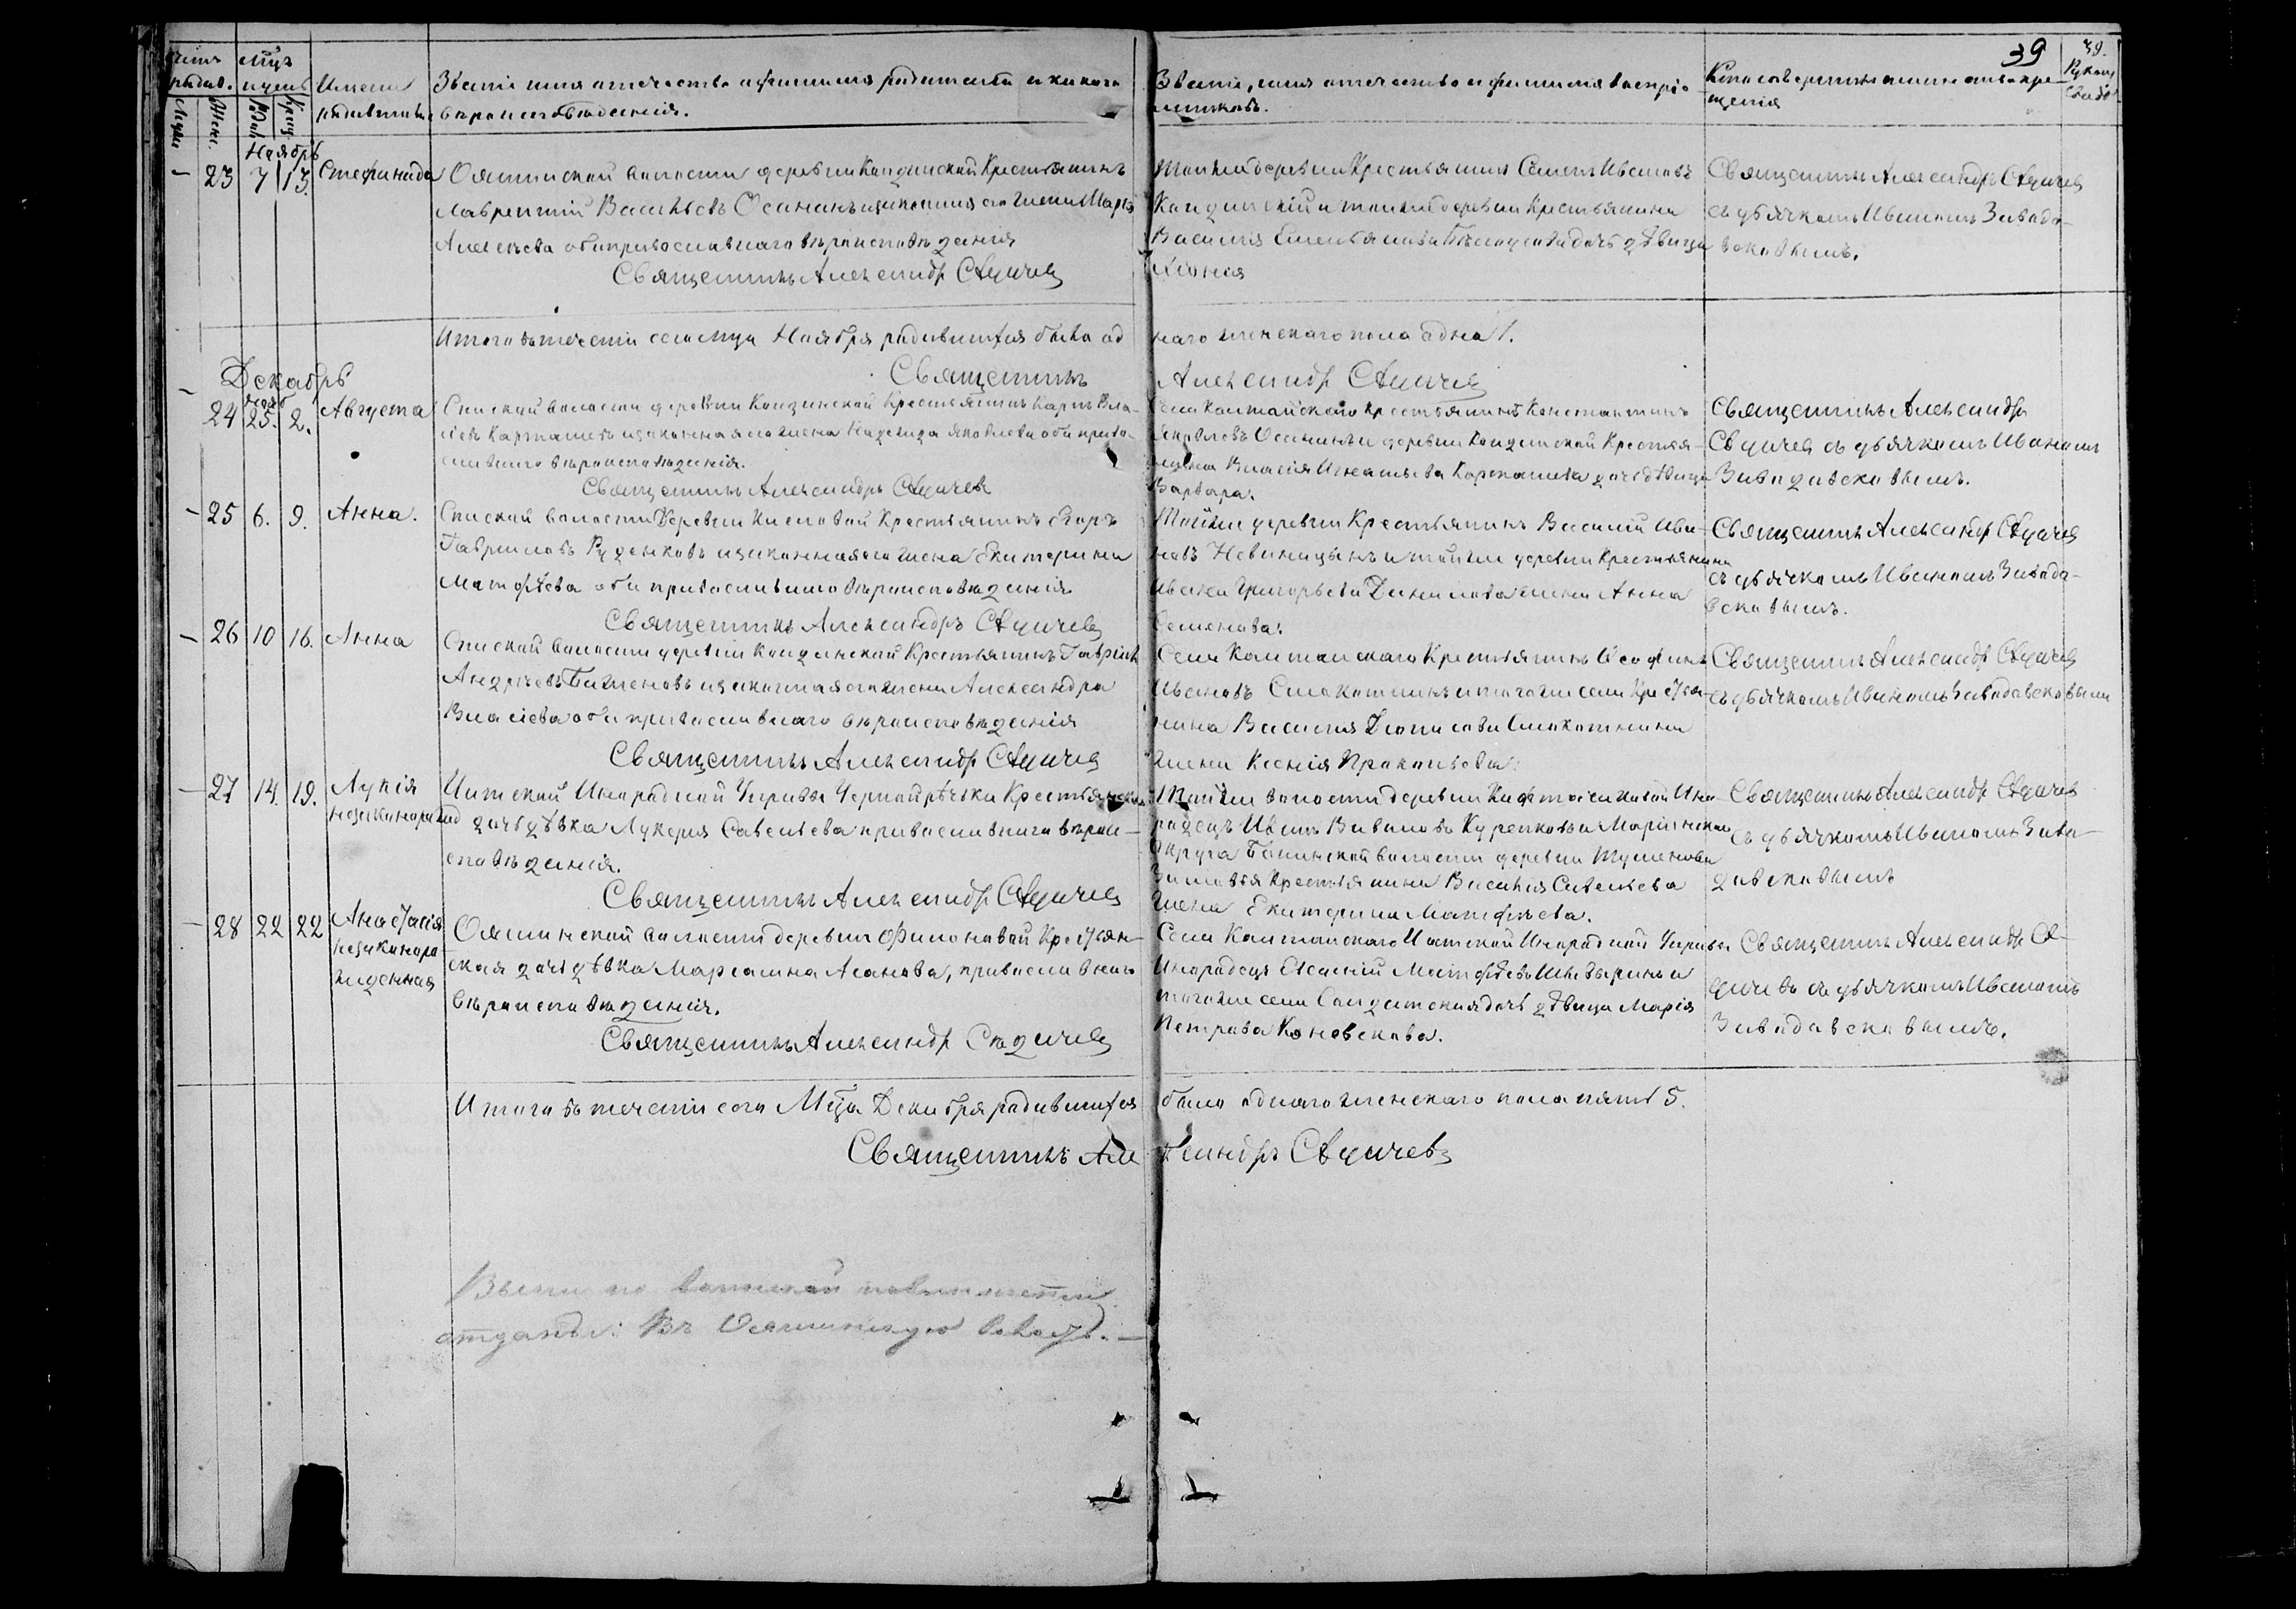 39
39.
Счетъ родив.
Мцъ и день
Имена родившихъ
Званіе имя отечество и фамилія родителей и какого
вѣроисповѣданія.
Званіе, имя отечество и фамилія воспріе-
мниковъ.
Кто совершалъ таинство кре-
щенія
Рукопр
Свидѣт
Муж
Жен.
Рож
Крещ.
Ноябрь
23 7 13. Стефанида
Ояшинской волости деревни Кандинской Крестьянинъ
Лаврентій Васильевъ Осининъ и законная его жена Марѳа
Алексѣева оба православнаго вѣроисповѣданія
Священникъ Александръ Сѣдичевъ
Той же деревни Крестьянинъ Семенъ Ивановъ
Кандинскій и той же деревни Крестьянина
Василія Емельянова дочь дѣвица
Хіонія
Священникъ Александръ Сѣдичевъ
съ дьячкомъ Иваномъ Завадо-
всковымъ.
Итого въ теченіи сего Мца Ноября родившихся было од
наго женскаго пола одна 1.
Священникъ
Александръ Сѣдичевъ
Декабрь
Нояб
24 25. 2. Августа
Спаской волости деревни Кандинской Крестьянинъ Карпъ Вла-
сіевъ Карташевъ и законная его жена Надежда Яковлева оба право-
славнаго вѣроисповѣданія.
Священникъ Александръ Сѣдичевъ
Села Калтайского Крестьянинъ Константинъ
Яковлевъ Осининъ и деревни Кандинской Крестья-
нина Власія Игнатьева Карташева дочь дѣвица
Варвара.
Священникъ Александръ
Сѣдичевъ съ дьячкомъ Иваномъ
Завадовсковымъ.
25 6. 9. Анна.
Спаской волости Деревни Кисловой Крестьянинъ Егоръ
Гавриловъ Руденковъ и законная его жена Екатерина
Матѳѣева оба православнаго вѣроисповѣданія
Священникъ Александръ Сѣдичевъ
Той же деревни Крестьянинъ Василій Ива-
новъ Невиницынъ и той же деревни Крестьянина
Ивана Григорьева Данилова жена Анна
Семенова.
Священникъ Александръ Сѣдичевъ
съ дьячкомъ Иваномъ Завадо-
всковымъ.
26 10 16. Анна
Спаской волости деревни Кандинской Крестьянинъ Гавріилъ
Андреевъ Баженовъ и законная его жена Александра
Власіева оба православнаго вѣроисповѣданія
Священникъ Александръ Сѣдичевъ
Села Калтайскаго Крестьянинъ Іосифъ
Ивановъ Смокотнинъ и того же села Крестья-
нина Василія Діонисова Смокотнина
жена Ксенія Прокопьева.
Священникъ Александръ Сѣдичевъ
съ дьячкомъ Иваномъ Завадовсковымъ
27 14. 19. Лукія
незаконорожд
Иштской Инородной Управы Черной рѣчки Крестьянская
дочь дѣвка Лукерья Савельева православнаго вѣрои-
сповѣданія.
Священникъ Александръ Сѣдичевъ
Той же волости деревни Ино-
родецъ Иванъ Куренковъ и Маріинскаго
Округа волости деревни
Крестьянина Василія Савельева
жена Екатерина Матѳѣева.
Священникъ Александръ Сѣдичевъ
съ дьячкомъ Иваномъ Зава-
довсковымъ
28 22 22 Анастасія
незаконоро-
жденная
Ояшинской волости деревни Филоновой Крестьян-
ская дочь дѣвка Марѳа православнаго
вѣроисповѣданія.
Священникъ Александръ Сѣдичевъ
Села Калтайскаго Иштской Инородной Управы
Инородецъ Евсевій Матѳѣевъ и
того же села Солдатская дочь дѣвица Марія
Петрова Коневскова.
Священникъ Александръ Сѣ-
дичевъ съ дьячкомъ Иваномъ
Завадовсковымъ.
Итого въ теченіи сего Мца Декабря родившихся
было однаго женскаго пола пять 5.
Священникъ Але
ксандръ Сѣдичевъ
по воинской повинности
отданъ: Въ Ояшинскую волость.